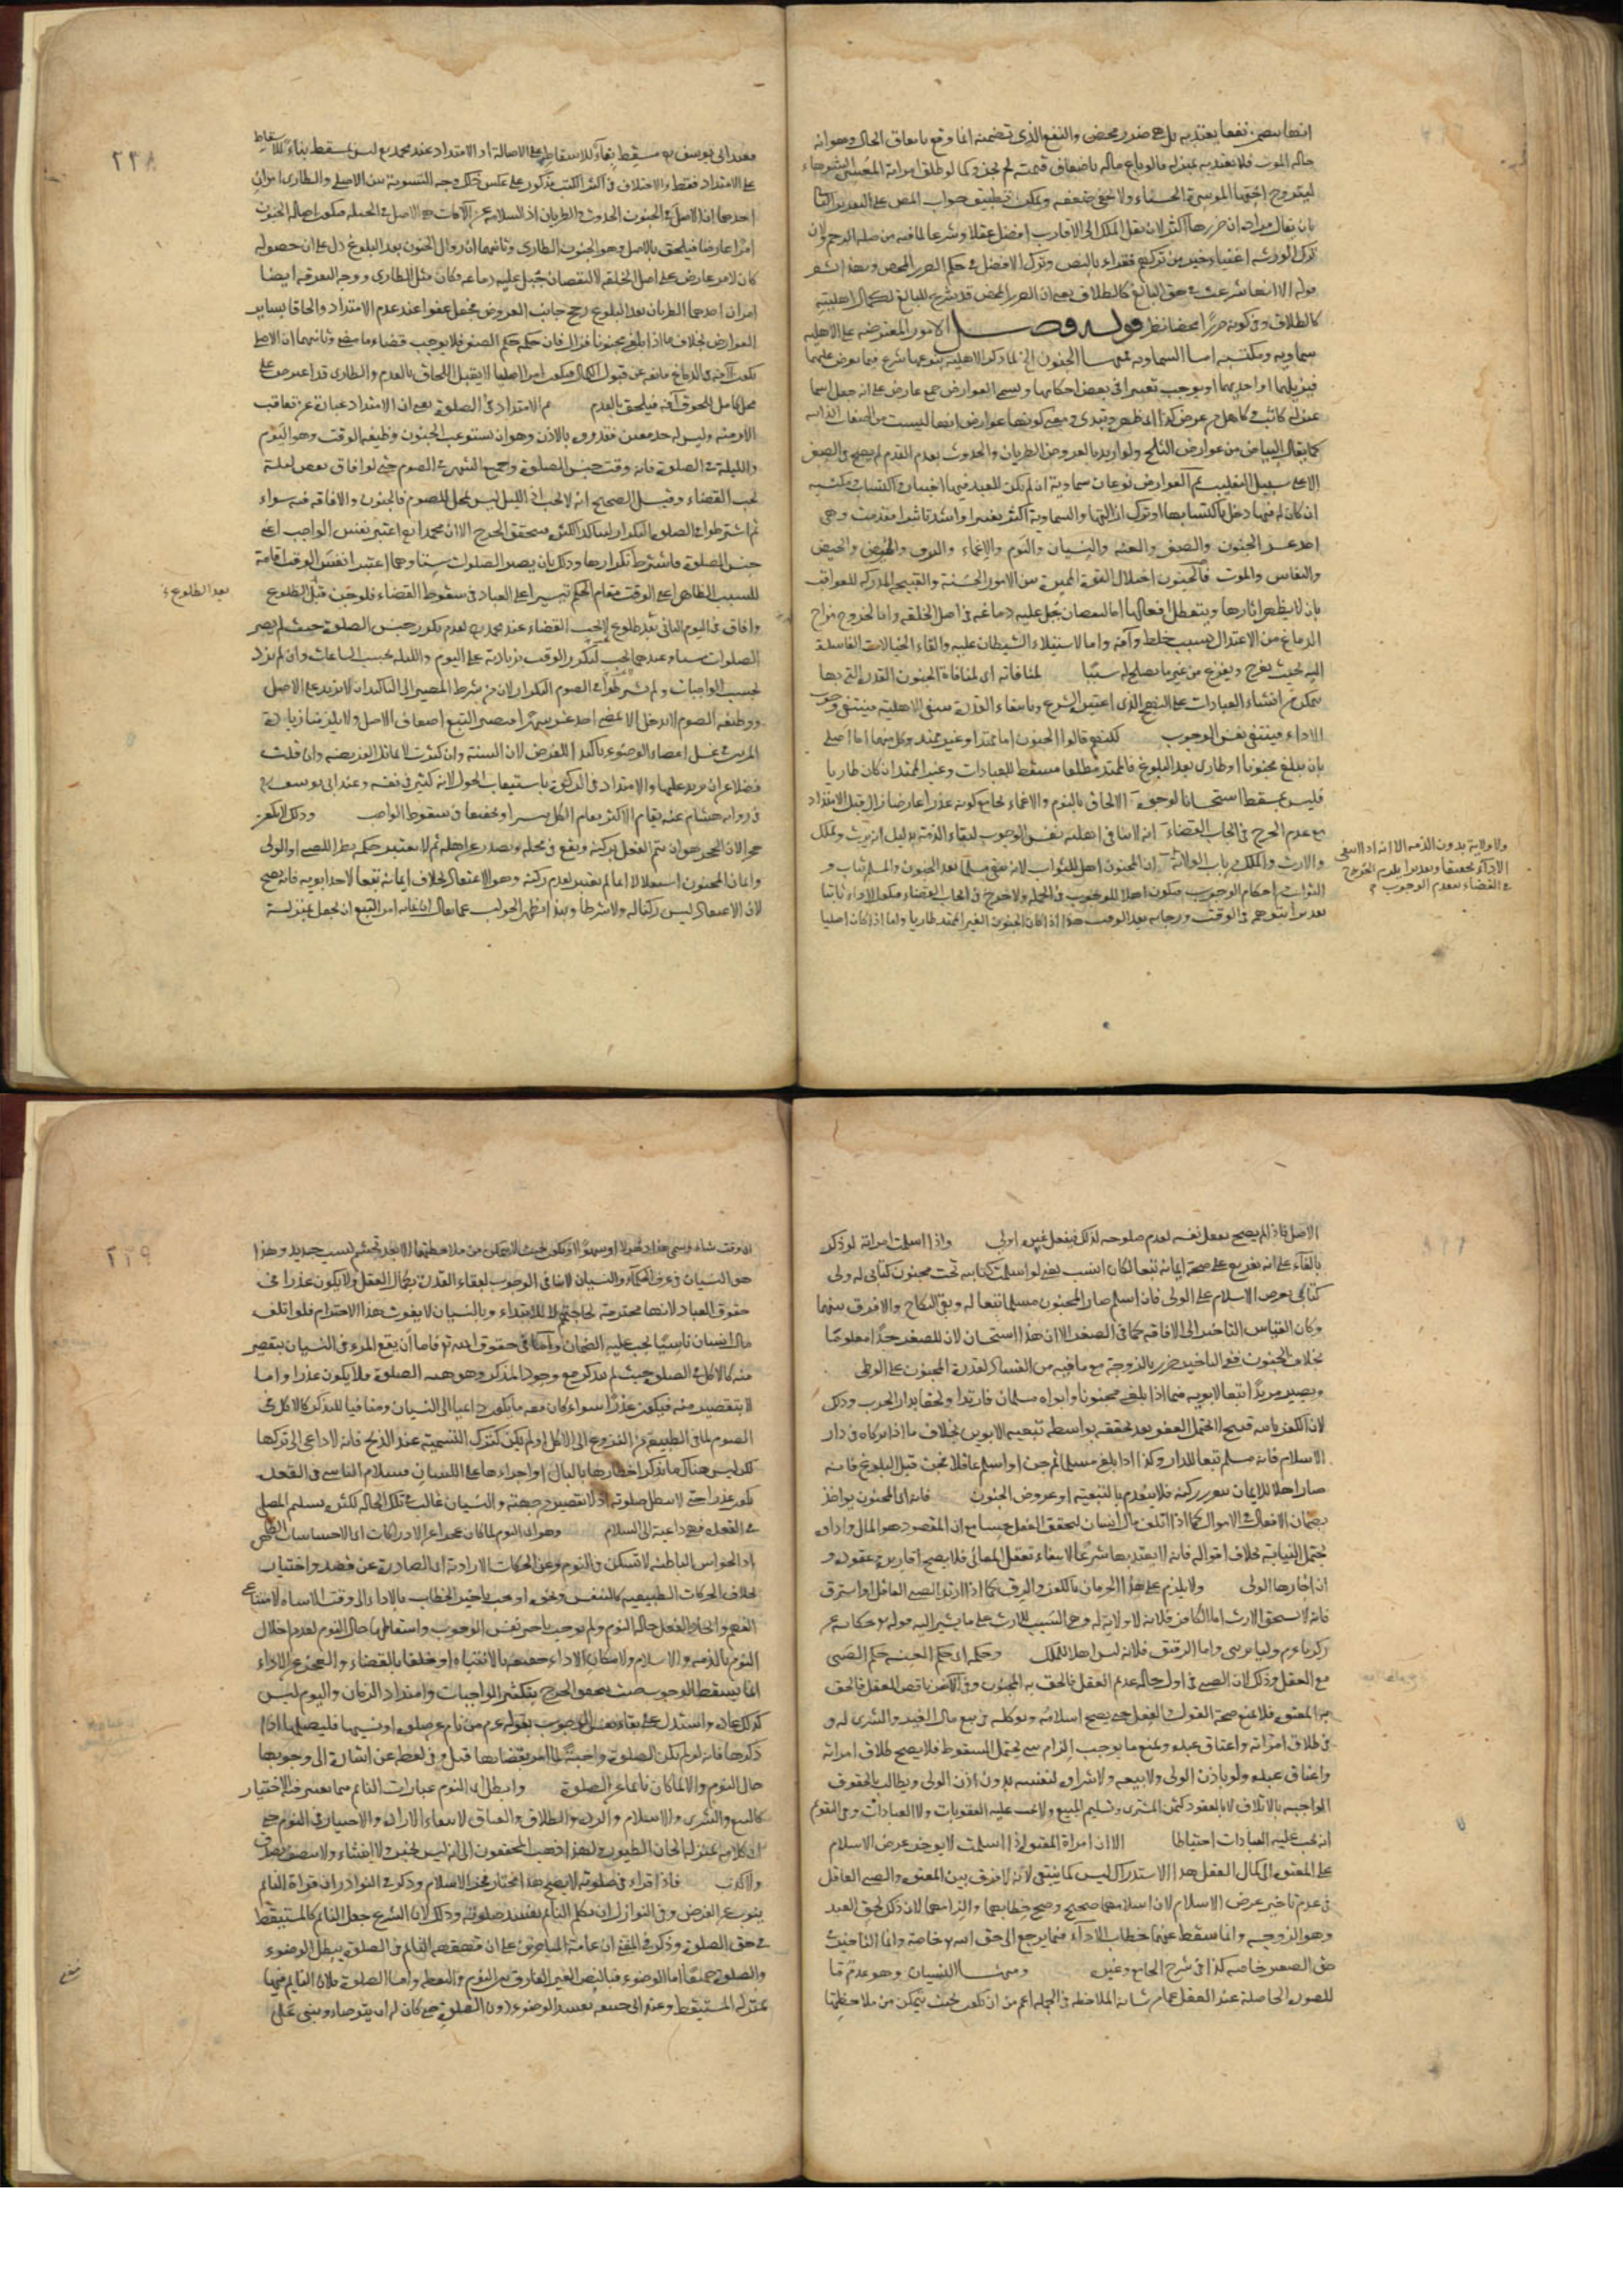 انها يتضمن نفعا يعتد به بل هى ضرر محض والنفع الذى تضمنه انما وقع باتفاق الحال وهو انه
حالة الموت فلا يعتد به بمنزلة ما لو باع ماله باضعاف قيمته لم يجز وكما لو طلق امراته المعسرة الشوهاء
ليتزوج اختها الموسرة الحسناء ولا يخفى ضعفه ويمكن تطبيق جواب المص على التقرير الثانى
بان يقال مراده ان ضررها اكثر لان نقل الملك الى الاقارب افضل عقلا وشرعا لما فيه من صلة الرحم ولان
ترك الورثة اغنياء خير من تركهم فقراء بالنص وترك الافضل فى حكم الضرر المحض وبهذا يشعر
قوله الا انها شرعت فى حق البالغ كالطلاق يعنى ان الضرر المحض قد يشرع للبالغ لكمال اهليته
كالطلاق وفى كونه ضررا محضا نظر قوله فصل الامور المعترضة على الاهلية
سماوية ومكتسبة اما السماوية فمنها الجنون الخ لما ذكر الاهلية بنوعيها شرع فيما يعرض عليهما
فيزيلهما او احديهما او يوجب تغييرا فى بعض احكامها ويسمى العوارض جمع عارض على انه جعل اسما
بمنزلة كاتب وكاهل من عرض كذا اى ظهر وتبدى ومعنى كونها عوارض انها ليست من الصفات الذاتية
كما يقال البياض من عوارض الثلج ولو اريد بالعروض الطريان والحدوث بعد العدم لم يصح فى الصغر
الا على سبيل التغليب ثم العوارض نوعان سماوية ان لم يكن للعبد فيها اختيار واكتساب ومكتسبة
ان كان له فيها دخل باكتسابها او ترك ازالتها والسماوية اكثر تغييرا واشد تاثيرا فقدمت وهى
احد عشر الجنون والصغر والعته والنسيان والنوم والاغماء والرق والمرض والحيض
والنفاس والموت فالجنون اختلال القوة المميزة بين الامور الحسنة والقبيحة المدركة للعواقب
بان لا يظهر اثارها ويتعطل افعالها اما لنقصان جبل عليه دماغه فى اصل الخلقة واما لخروج مزاج
الدماغ من الاعتدال بسبب خلط وآفة واما لاستيلاء الشيطان عليه والقاء الخيالات الفاسدة
اليه بحيث يفرح ويفزع من غير ما يصلح له سببا لمنافاته اى لمنافاة الجنون القدرة التى بها
يتمكن من انشاء العبادات على النهج الذى اعتبره الشرع وبانتفاء القدرة ينتفى الاهلية فينتفى وجوب
الاداء فينتفى نفس الوجوب لكنهم قالوا الجنون اما ممتد او غير ممتد وكل منهما اما اصلى
بان يبلغ مجنونا او طارى بعد البلوغ فالممتد مطلقا مسقط للعبادات وغير الممتد ان كان طاريا
فليس بمسقط استحسانا لوجوه الالحاق بالنوم والاغماء بجامع كونه عذرا عارضا زال قبل الامتداد
مع عدم الحرج فى ايجاب القضاء انه لا ينافى اهلية نفس الوجوب لبقاء الذمة بدليل انه يرث ويملك
والارث والملك من باب الولاية ان المجنون اهل للثواب لانه يبقى مسلما بعد الجنون والمسلم يثاب و
الثواب من احكام الوجوب فيكون اهلا للوجوب فى الجملة ولا حرج فى ايجاب القضاء فيكون الاداء ثابتا
تقديرا بتوهمه فى الوقت ورجائه بعد الوقت هذا اذا كان الجنون الغير الممتد طاريا واما اذا كان اصليا
ولا ولاية بدون الذمة الا انه اذا انتفى
الاداء تحقيقا وتقديرا بلزوم الحرج
فى القضاء ينعدم الوجوب
٢٣٨
فعند ابى يوسف مسقط بناء للاسقاط على الاصالة او الامتداد عند محمد ليس بمسقط بناء للاسقاط
على الامتداد فقط والاختلاف فى اكثر الكتب مذكور على عكس ذلك وجه التسوية بين الاصلى والطارى امران
احدهما ان الاصل فى الجنون الحدوث والطريان اذ السلامة عن الآفات هى الاصل فى الجبلة فيكون اصالة الجنون
امرا عارضا فيلحق بالاصل وهو الجنون الطارى وثانيهما ان زوال الجنون بعد البلوغ دل على ان حصوله
كان لامر عارض على اصل الخلقة لا لنقصان جبل عليه دماغه وكان مثل الطارى ووجه التفرقة ايضا
امران احدهما الطريان بعد البلوغ رجح جانب العروض فجعل عفوا عند عدم الامتداد والحاقا بساير
العوارض بخلاف ما اذا بلغ مجنونا فزال فان حكمه حكم الصغر فلا يوجب قضاء ما مضى وثانيهما ان الاصلى
يكون لآفة فى الدماغ مانعة عن قبول الكمال فيكون امرا اصليا لا يقبل اللحاق بالعدم والطارى قد اعترض على
محل كامل للحوق آفة فيلحق بالعدم ثم الامتداد فى الصلوة يعنى ان الامتداد عبارة عن تعاقب
الازمنة وليس له حد معين فقدروه بالادنى وهو ان يستوعب الجنون وظيفة الوقت وهو اليوم
والليلة فى الصلوة فانه وقت جنس الصلوة وجميع الشهر فى الصوم حتى لو افاق بعض ليلة
يجب القضاء وقيل الصحيح انه لا يجب اذ الليل ليس بمحل للصوم فالجنون والافاقة فيه سواء
ثم اشترطوا فى الصلوة التكرار ليتاكد الكثرة فيتحقق الحرج الا ان محمدا اعتبر نفس الواجب اعنى
جنس الصلوة فاشترط تكرارها وذلك بان يصير الصلوات ستا وهما اعتبرا نفس الوقت اقامة
للسبب الظاهر اعنى الوقت مقام الحكم تيسيرا على العباد فى سقوط القضاء فلو جن قبل الطلوع
وافاق فى اليوم الثانى بعد طلوع لا يجب القضاء عند محمد لعدم تكرر جنس الصلوة حيث لم يصر
الصلوات ستا وعندهما يجب لتكرر الوقت بزيادته على اليوم والليلة بحسب الساعات وان لم تزد
بحسب الواجبات ولم يشترطوا فى الصوم التكرار لان من شرط المصير الى التاكيد ان لا يزيد على الاصل
ووظيفة الصوم لا تدخل الا بمضى احد عشر شهرا فيصير التبع اضعاف الاصل ولا يلزمنا زيادة
المرتين فى غسل اعضاء الوضوء تاكيدا للفرض لان السنة وان كثرت لا تماثل الفريضة وان قلت
فضلا عن ان تزيد عليها والامتداد فى الزكوة باستيعاب الحول لانه كثير فى نفسه وعند ابى يوسف
فى رواية هشام عنه يقام الاكثر مقام الكل تيسيرا وتخفيفا فى سقوط الواجب وذلك لا كفر
حجر الان الحجر هو ان يتم الفعل بركنه ويقع فى محله ويصدر عن اهله ثم لا يعتبر حكمه نظرا للصبى او الولى
وايمان المجنون استقلالا انما لم يعتبر لعدم ركنه وهو الاعتقاد بخلاف ايمانه تبعا لاحد ابويه فانه يصح
لان الاعتقاد ليس ركنا له ولا شرطا وبهذا يظهر الجواب عما يقال ان غاية امر التبع ان يجعل بمنزلة
بعد الطلوع
الاصل فاذا لم يصح بفعل نفسه لعدم صلوحه لذلك فبفعل غيره اولى واذا اسلمت امراته لو ذكر
بالفاء على انه تفريع على صحة ايمانه تبعا لكان انسب يعنى لو اسلمت كتابية تحت مجنون كتابى له ولى
كتابى يعرض الاسلام على الولى فان اسلم صار المجنون مسلما تبعا له وبقى النكاح والا فرق بينهما
وكان القياس التاخير الى الافاقة كما فى الصغر الا ان هذا استحسان لان للصغر حدا معلوما
بخلاف الجنون ففى التاخير ضرر بالزوجة مع ما فيه من الفساد لقدرة المجنون على الوطى
ويصير مرتدا تبعا لابويه فيما اذا بلغ مجنونا وابواه مسلمان فارتدا ولحقا بدار الحرب وذلك
لان الكفر بالله قبيح لا يحتمل العفو بعد تحققه بواسطة تبعية الابوين بخلاف ما اذا تركاه فى دار
الاسلام فانه مسلم تبعا للدار وكذا اذا بلغ مسلما ثم جن او اسلم عاقلا فجن قبل البلوغ فانه
صار اهلا للايمان بتقرر ركنه فلا ينعدم بالتبعية او عروض الجنون فانه اى المجنون يؤاخذ
بضمان الافعال فى الاموال كما اذا اتلف مال انسان لتحقق الفعل حسا مع ان المقصود هو المال واداؤه
يحتمل النيابة بخلاف اقواله فانه لا يعتد بها شرعا لانتفاء تعقل المعانى فلا يصح اقاريره وعقوده و
ان اجازها الولى ولا يلزم على هذا الحرمان بالكفر والرق كما اذا ارتد الصبى العاقل او استرق
فانه لا يستحق الارث اما الكافر فلانه لا ولاية له وهى السبب للارث على ما يشير اليه قوله تع حكاية عن
زكريا يرثنى ولياً يرثنى واما الرقيق فلانه ليس اهلا للملك وحكمه اى حكم العته حكم الصبى
مع العقل وذلك لان الصبى فى اول حاله عديم العقل فالحق به المجنون وفى الآخر ناقص العقل فالحق
به المعتوه فلا يمنع صحة القول والفعل حتى يصح اسلامه وتوكله فى بيع مال الغير والشرى له و
فى طلاق امراته واعتاق عبده ويمنع ما يوجب الزام شىء يحتمل السقوط فلا يصح طلاق امراته
واعتاق عبده ولو باذن الولى ولا بيعه ولا شراؤه لنفسه بدون اذن الولى ويطالب بالحقوق
الواجبة بالاتلاف لا بالعقود كثمن المشترى وتسليم المبيع ولا يجب عليه العقوبات ولا العبادات وفى التقويم
انه يجب عليه العبادات احتياطا الا ان امراة المعتوه اذا اسلمت لا يؤخر عرض الاسلام
على المعتوه الى كمال العقل هذا الاستدراك ليس كما ينبغى لانه لا فرق بين المعتوه والصبى العاقل
فى عدم تاخير عرض الاسلام لان اسلامهما صحيح وصح خطابهما والزامهما لان ذلك لحق العبد
وهو الزوجة وانما سقط عنهما خطاب الاداء فيما يرجع الى حق الله تع خاصة وانما التاخير فى
حق الصغير خاصة كذا فى شرح الجامع وغيره ومنها النسيان وهو عدم ما
للصورة الحاصلة عند العقل عما من شانه الملاحظة فى الجملة اعم من ان يكون بحيث يتمكن من ملاحظتها
٢٣٩
اى وقت شاء ويسمى هذا ذهولا وسهوا او يكون بحيث لا يتمكن من ملاحظتها الا بعد تجشم كسب جديد وهذا
هو النسيان فى عرف الحكماء والنسيان لا ينافى الوجوب لبقاء القدرة بكمال العقل ولا يكون عذرا فى
حقوق العباد لانها محترمة لحاجتهم لا للابتداء وبالنسيان لا يفوت هذا الاحترام فلو اتلف
مال انسان ناسيا يجب عليه الضمان واما فى حقوق الله تع فاما ان يقع المرء فى النسيان بتقصير
منه كالاكل فى الصلوة حيث لم يتذكر مع وجود المذكر وهو هيئة الصلوة فلا يكون عذرا واما
لا بتقصير منه فيكون عذرا سواء كان معه ما يكون داعيا الى النسيان ومنافيا للتذكر كالاكل فى
الصوم لما فى الطبيعة من النزوع الى الاكل او لم يكن كترك التسمية عند الذبح فانه لا داعى الى تركها
لكن ليس هناك ما يذكر اخطارها بالبال او اجراءها على اللسان فسلام الناسى فى القعدة
يكون عذرا حتى لا يبطل صلوته اذ لا تقصير من جهته والنسيان غالب فى تلك الحالة لكثرة تسليم المصلى
فى القعدة فهى داعية الى السلام وهو اى النوم لما كان عجزا عن الادراكات اى الاحساسات الظاهرة
اذ الحواس الباطنة لا تسكن فى النوم وعن الحركات الارادية اى الصادرة عن قصد واختيار
بخلاف الحركات الطبيعية كالتنفس ونحوه اوجب تاخير الخطاب بالاداء الى وقت الانتباه لامتناع
الفهم وايجاد الفعل حالة النوم ولم يوجب تاخير نفس الوجوب واسقاطها حال النوم لعدم اخلال
النوم بالذمة والاسلام ولامكان الاداء حقيقة بالانتباه او خلفا بالقضاء والعجز عن الاداء
انما يسقط الوجوب حيث يتحقق الحرج بتكثر الواجبات وامتداد الزمان والنوم ليس
كذلك عادة واستدل على بقاء نفس الوجوب بقوله عم من نام عن صلوة او نسيها فليصلها اذا
ذكرها فانه لو لم تكن الصلوة واجبة لما امر بقضائها قيل وفى لفظ عن اشارة الى وجوبها
حال النوم والا لما كان نائما عن الصلوة وابطل اى النوم عبارات النائم فيما يعتبر فيه الاختيار
كالبيع والشرى والاسلام والردة والطلاق والعتاق لانتفاء الارادة والاختيار فى النوم حتى
ان كلامه بمنزلة الحان الطيور ولهذا ذهب المحققون الى انه ليس بخبر ولا انشاء ولا يتصف بصدق
ولا كذب فاذا قرا فى صلوته لا يصح هذا مختار فخر الاسلام وذكر فى النوادر ان قراة النائم
ينوب عن الفرض وفى النوازل ان تكلم النائم يفسد صلوته وذلك لان الشرع جعل النائم كالمستيقظ
فى حق الصلوة وذكر فى المغنى ان عامة المتاخرين على ان قهقهة النائم فى الصلوة يبطل الوضوء
والصلوة جميعا اما الوضوء فبالنص الغير الفارق بين النوم واليقظة واما الصلوة فلان النائم فيها
بمنزلة المستيقظ وعند ابى حنيفة تفسد الوضوء دون الصلوة حتى كان له ان يتوضا ويبنى على